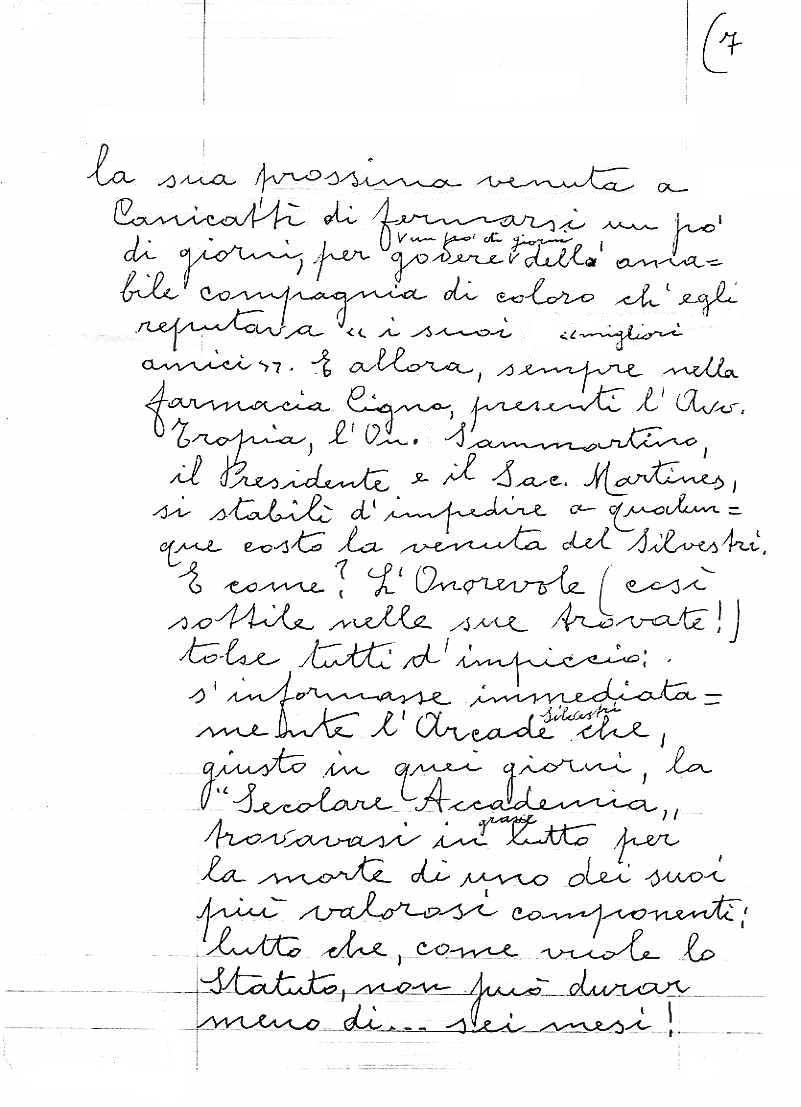 (7
la sua prossima venuta a
Canicattì di fermarsi un pò
di giorni, per godere un po' di giorni dell' ama=
bile compagnia di coloro ch'egli
reputava « i suoi «migliori
amici». E allora, sempre nella
farmacia Cigna, presenti l'Avv.
Tropia, l'On. Sammartino,
il Presidente e il Sac. Martines,
si stabilì d'impedire a qualun=
que costo la venuta del Silvestri.
E come? L'Onorevole (così
sottile nelle sue trovate!)
tolse tutti d'impiccio:
s'informasse immediata=
mente l'Arcade Silvestri che,
giusto in quei giorni, la
"Secolare Accademia"
trovavasi in grave lutto per
la morte di uno dei suoi
più valorosi componenti:
lutto che, come vuole lo
Statuto, non può durar
meno di... sei mesi!